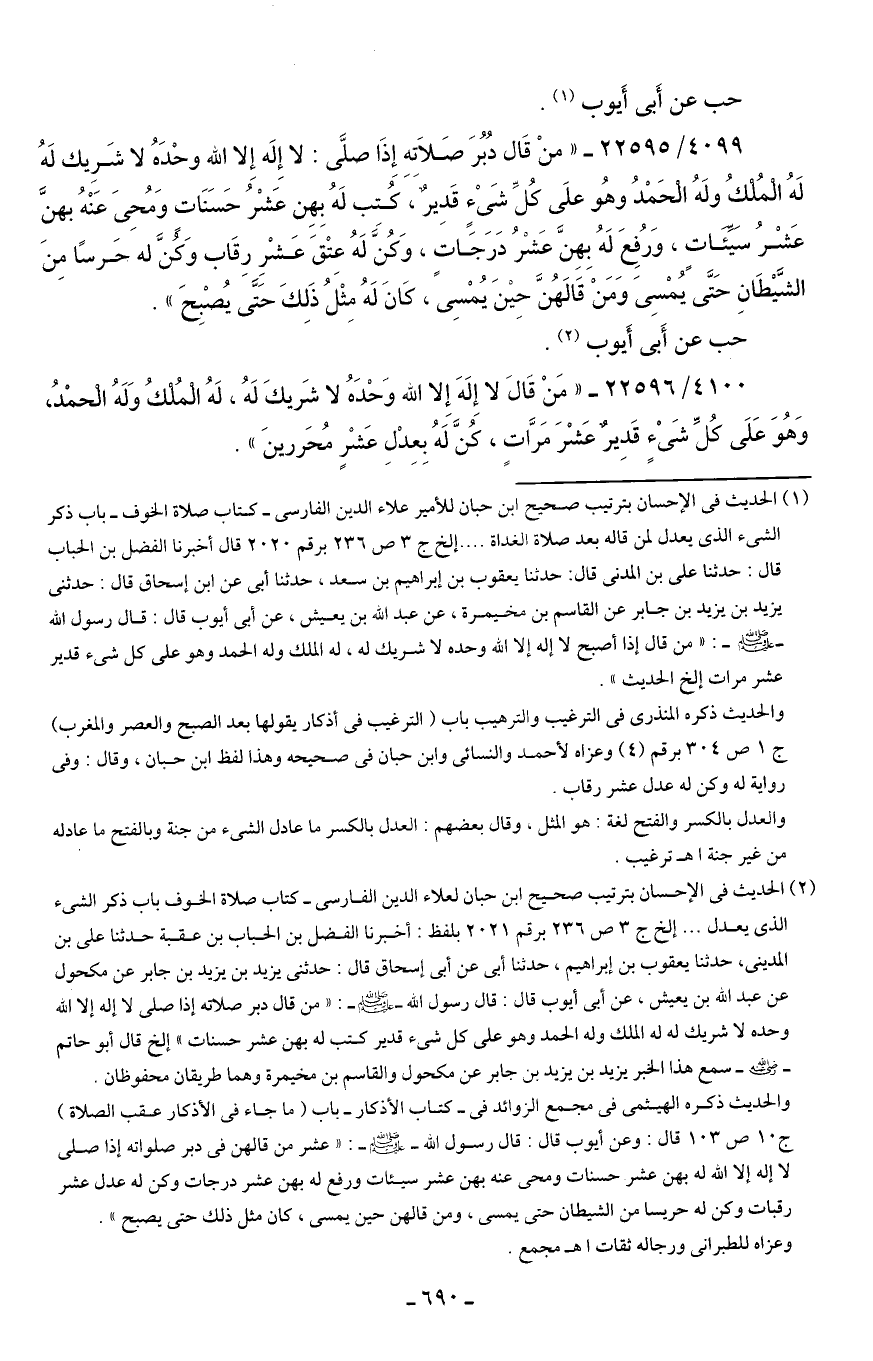 حب عن أَبى أَيوب (١) .
٢٢٥٩٥/٤٠٩٩ ـ « منْ قَال دُبُرَ صَـلاَتِه إِذَا صلَّى : لا إِلَه إلا الله وحْدَهُ لا شَـرِيك لَهُ
لَهُ الْمُلْكُ ولَهُ الْحَمْدُ وهُو علَى كُلِّ شَىْءٍ قَدِيرٌ ، كُـتب لَهُ بِهِن عَشْرُ حَسَنَاتٍ وَمُحِىَ عَنْهُ بِهنَّ
عَشْـرُ سَيِّئَـاتٍ ، وَرُفِعَ لَهُ بِهِنَّ عَشْرُ دَرَجَـاتٍ ، وَكُنَّ لَهُ عتْقَ عَـشْرِ رِقَاب وكُنَّ له حَـرسًا مِنَ
الشَّيْطَانِ حَتَّى يُمْسِىَ وَمَنْ قَالَهُنَّ حِيْنَ يُمْسِى ، كَانَ لَهُ مِثْلُ ذَلِكَ حَتَّى يُصْبِحَ » .
حب عن أَبى أَيوب (٢) .
٢٢٥٩٦/٤١٠٠ ـ « مَنْ قَالَ لا إِلَهَ إِلا الله وَحْدَهُ لا شَرِيكَ لَهُ ، لَهُ الْمُلْكُ وَلَهُ الْحمدُ،
وَهُوَ عَلَى كُلِّ شَىْءٍ قَدِيرٌ عَشْرَ مَرَّاتٍ ، كُنَّ لَهُ بِعِدْلِ عَشْرٍ مُحَررينَ » .
(١) الحديث فى الإحسان بترتيب صـحيح ابن حبان للأمير علاء الدين الفارسى ـ كـتاب صلاة الخوف ـ باب ذكر
الشىء الذى يعدل لمن قاله بعد صلاة الغداة ....إلخ ج ٣ ص ٢٣٦ برقم ٢٠٢٠ قال أخبرنا الفضل بن الحباب
قال : حدثنا على بن المدنى قال: حدثنا يعقوب بن إبراهيم بن سـعد ، حدثنا أبى عن ابن إسحاق قال : حدثنى
يزيد بن يزيد بن جـابر عن القاسم بن مخـيمـرة ، عن عبد الله بن يعـيش ، عن أبى أيوب قال : قـال رسول الله
ـ ﷺ ـ : « من قال إذا أصبح لا إله إلا الله وحده لا شـريك له ، له الملك وله الحمد وهو على كل شىء قدير
عشر مرات إلخ الحديث » .
والحديث ذكره المنذرى فى الترغيب والترهيب باب ( الترغيب فى أذكار يقولها بعد الصبح والعصر والمغرب)
ج ١ ص ٣٠٤ برقم (٤) وعزاه لأحمـد والنسائى وابن حبان فى صـحيحه وهذا لفظ ابن حـبان ، وقال : وفى
رواية له وكن له عدل عشر رقاب .
والعدل بالكسر والفتح لغة : هو المثل ، وقال بعضهم : العدل بالكسر ما عادل الشىء من جنة وبالفتح ما عادله
من غير جنة ا هـ ترغيب .
(٢) الحديث فى الإحـسان بترتيب صحيح ابن حبان لعلاء الدين الفـارسى ـ كتاب صلاة الخـوف باب ذكر الشىء
الذى يعـدل ... إلخ ج ٣ ص ٢٣٦ برقم ٢٠٢١ بلفظ : أخـبرنا الفـضل بن الحـباب بن عـقبة حدثنا على بن
المدينى، حدثنا يعقوب بن إبراهيم ، حدثنا أبى عن أبى إسحاق قال : حدثنى يزيد بن يزيد بن جابر عن مكحول
عن عبد الله بن يعيش ، عن أبى أيوب قال : قال رسول الله ـ ﷺ ـ : « من قال دبر صلاته إذا صلى لا إله إلا الله
وحده لا شريك له له الملك وله الحمد وهو على كل شىء قدير كـتب له بهن عشر حسنات » إلخ قال أبو حاتم
ـ رضي الله عنه ـ سمع هذا الخبر يزيد بن يزيد بن جابر عن مكحول والقاسم بن مخيمرة وهما طريقان محفوظان .
والحديث ذكـره الهيـثمى فى مجمع الزوائد فى ـ كتاب الأذكار ـ باب ( ما جاء فى الأذكار عـقب الصلاة )
ج١٠ ص ١٠٣ قال : وعن أيوب قال : قال رسـول الله ـ ﷺ ـ : « عشر من قالهن فى دبر صلواته إذا صلى
لا إله إلا الله له بهن عشر حسنات ومحى عنه بهن عشر سيـئات ورفع له بهن عشر درجات وكن له عدل عشر
رقبات وكن له حريسا من الشيطان حتى يمسى ، ومن قالهن حين يمسى ، كان مثل ذلك حتى يصبح » .
وعزاه للطبرانى ورجاله ثقات ا هـ مجمع .
ـ ٦٩٠ ـ